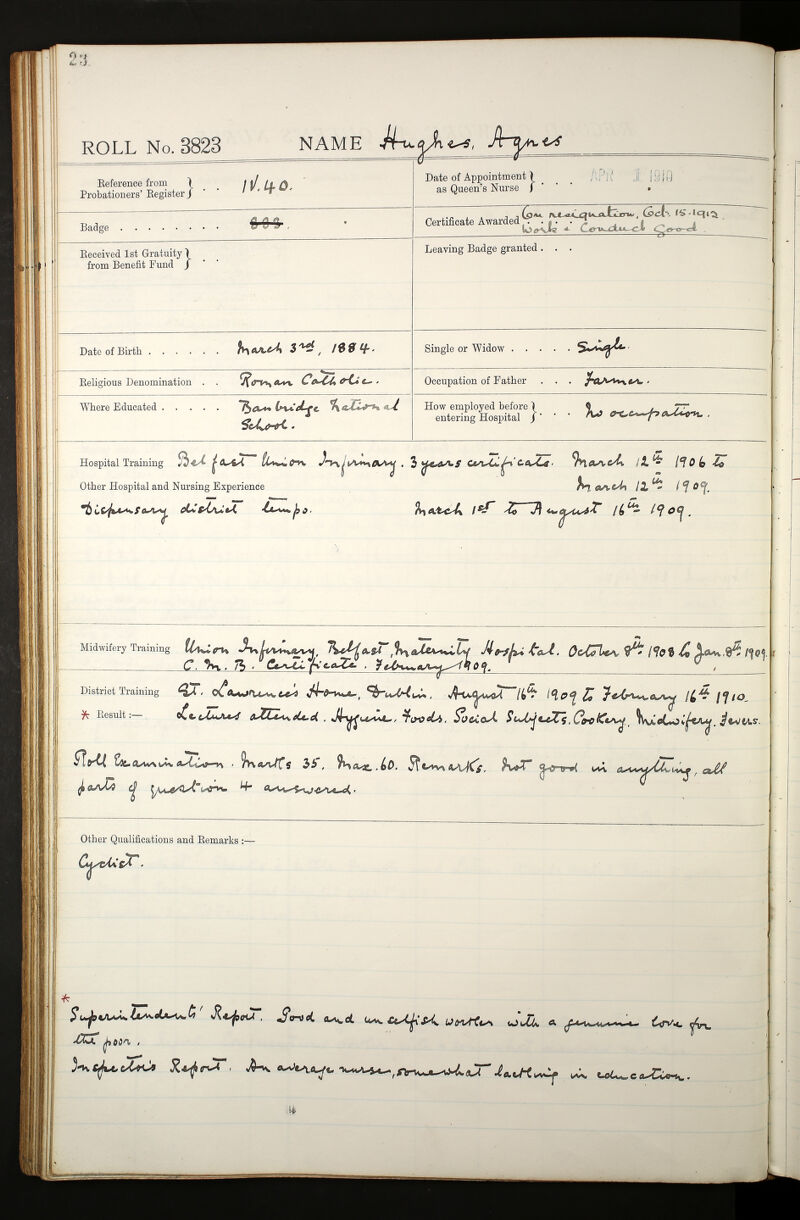 23.
ROLL No. 3823 NAME Hughes, Agnes
Reference from Probationers' Register } . . IV. 40.
Date of Appointment as Queen's Nurse } . . . APR 1910
Badge . . . . . . . .
Certificate Awarded On resignation, Oct. 15.1912.
Work & Conduct good.
Received 1st Gratuity from Benefit Fund } . .
Leaving Badge granted . . .
Date of Birth . . . . . . March 3rd, 1884.
Single or Widow . . . . . Single.
Religious Denomination . . Roman Catholic.
Occupation of Father . . . Farmer.
Where Educated . . . . . Banbridge National
School.
How employed before entering Hospital } . . . No occupation.
Hospital Training Belfast Union Infirmary. 3 years certificate. March 12th 1906 to
Other Hospital and Nursing Experience March 12th 1909.
Dispensary district tempo. March 1st to August 16th 1909.
Midwifery Training Union Infirmary, Belfast, Maternity Hospital. October 8th 1908 to Jan. 8th 1909.
C. M. B. Certificate. February 1909.
District Training St. Lawrence's Home, Dublin. August 16th 1909 to February 16th 1910.
* Result:— Lectures attended. Hygiene. Foods. Social Subjects. Cookery. Midwifery. Fevers.
Roll Examination. Marks 35. Max. 60. Remarks. Not good in anything, all
parts of question 4 answered.
Other Qualifications and Remarks:—
Cyclist.
* Superintendents' Report. Good and unselfish worker with a genuine love for
the poor.
Inspector's Report. An average nurse, somewhat lacking in education.